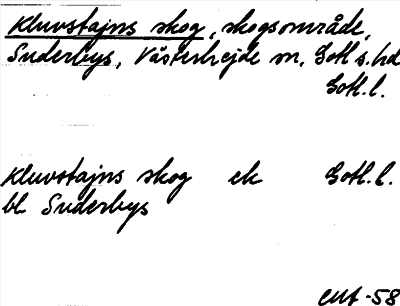 Kluvstajns skog, skogsområde,
Suderbys, Västerhejde sn, Gotl s. hd
Gotl. l.
Kluvstajns skog ek Gotl. l.
bl. Suderbys
-58